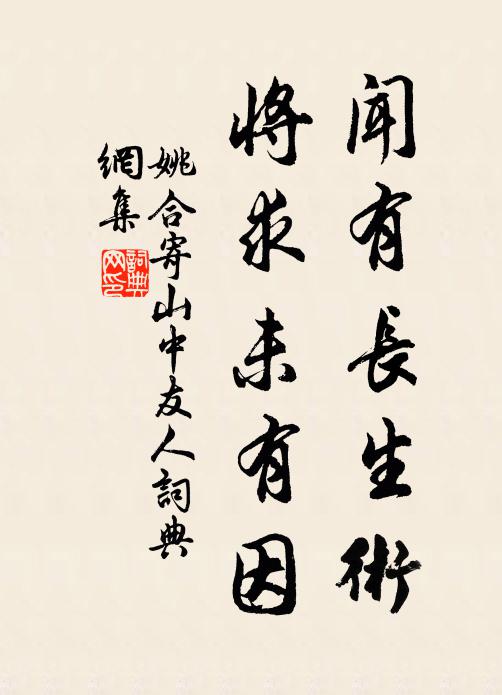 聞有長生術
將求未有因
姚合寄山中友人詞典
網集
詞典
网印